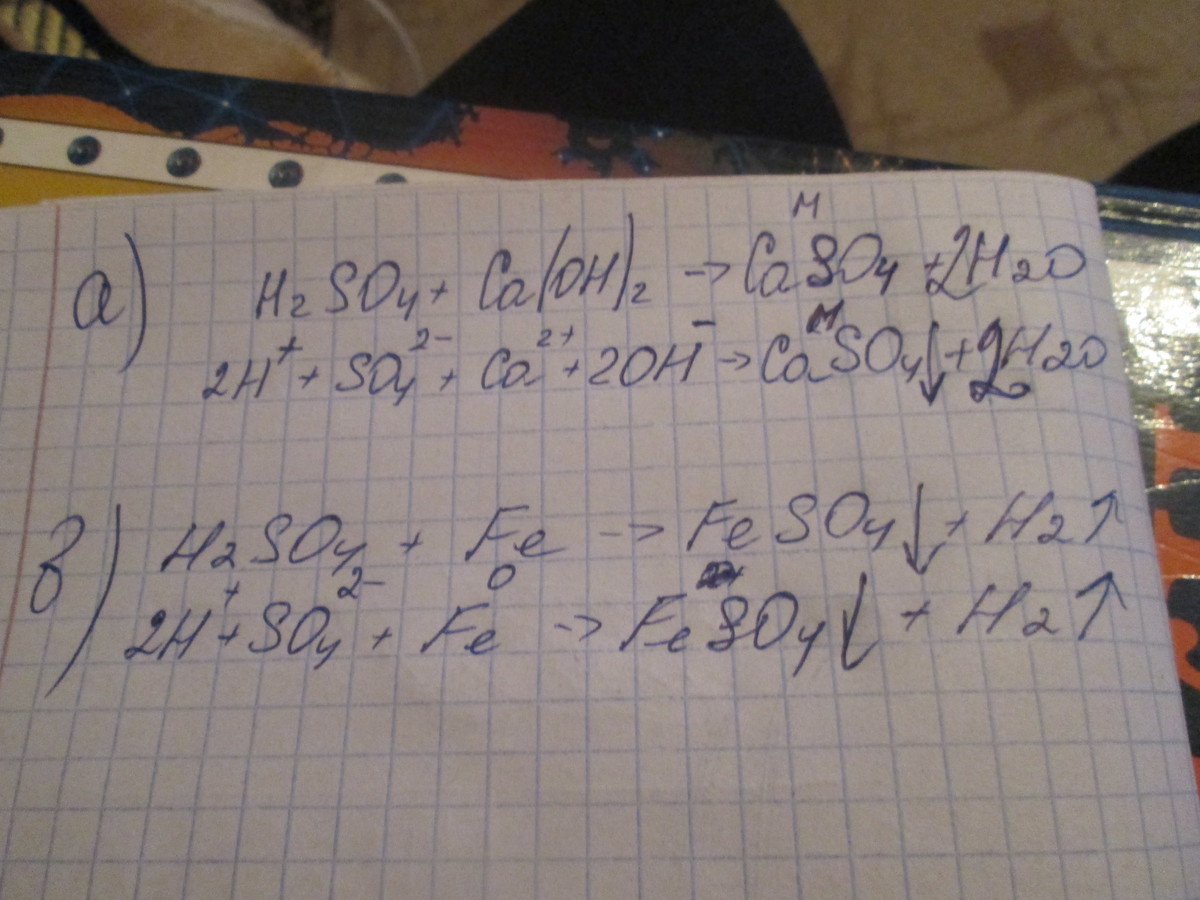 м
а) H₂SO₄ + Ca(OH)₂ → CaSO₄ + 2H₂O
м
2H⁺ + SO₄²⁻ + Ca²⁺ + 2OH⁻ → CaSO₄↓ + 2H₂O
в) H₂SO₄ + Fe → FeSO₄↓ + H₂↑
2H⁺ + SO₄²⁻ + Fe⁰ → FeSO₄↓ + H₂↑